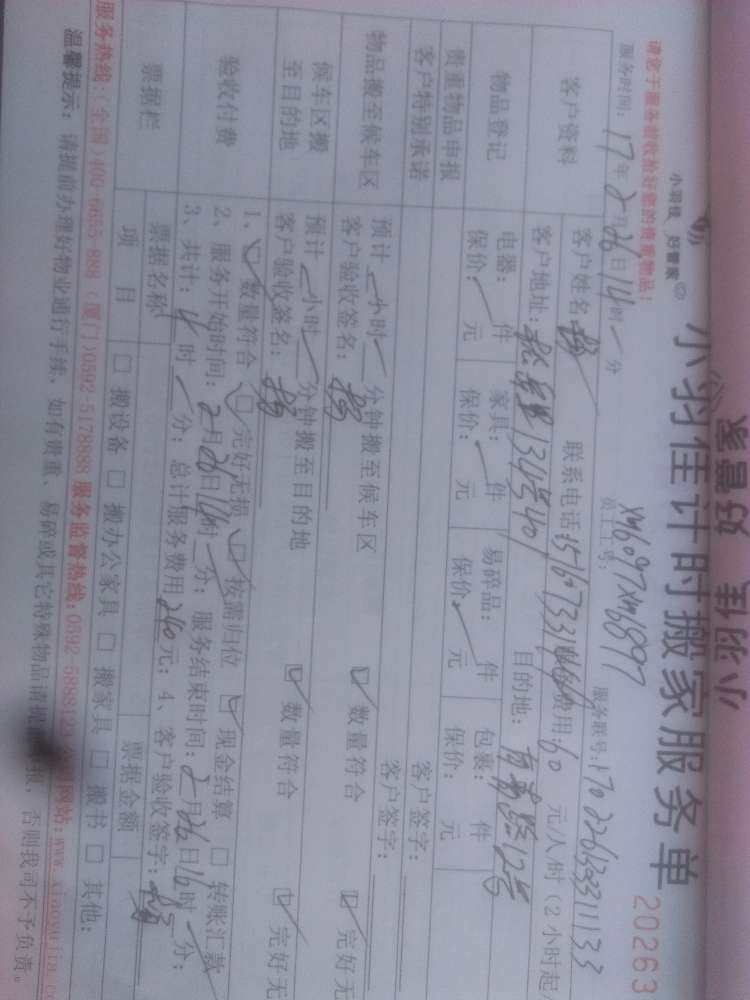 请您于服务前收拾好您的贵重物品！
小羽佳 好管家
小羽佳计时搬家服务单
20263
员工工号：XM6097XM6897
服务时间：17年2月26日14时/分
服务联号：
客户资料
客户姓名： 联系电话： 服务费用：60元/人/时（2小时起
客户地址： 134号401 目的地：
物品登记
电器：/件 家具：/件 易碎品：/件 包裹：件
保价：元 保价：元 保价：元 保价：元
贵重物品申报
客户签字：
客户特别承诺
客户签字：
物品搬至候车区
预计/小时/分钟搬至候车区 ☑数量符合 ☑完好无
客户验收签名：
候车区搬至目的地
预计/小时/分钟搬至目的地 ☑数量符合 ☑完好无
客户验收签名：
验收付费
1、☑数量符合 ☑完好无损 ☑按需归位 ☑现金结算 □转账汇款
2、服务开始时间：2月26日14时/分；服务结束时间：2月26日16时/分；
3、共计：4时/分；总计服务费用240元；4、客户验收签字：
票据栏
票据名称 票据金额
项目 □搬设备 □搬办公家具 □搬家具 □搬书 □其他：
服务热线：(全国)400-6655-888 (厦门)0592-5178888 服务监督热线：0592-5888 网站：www.xiaoyujia.co
温馨提示：请提前办理好物业通行手续，如有贵重、易碎或其它特殊物品请提 报，否则我司不予负责。